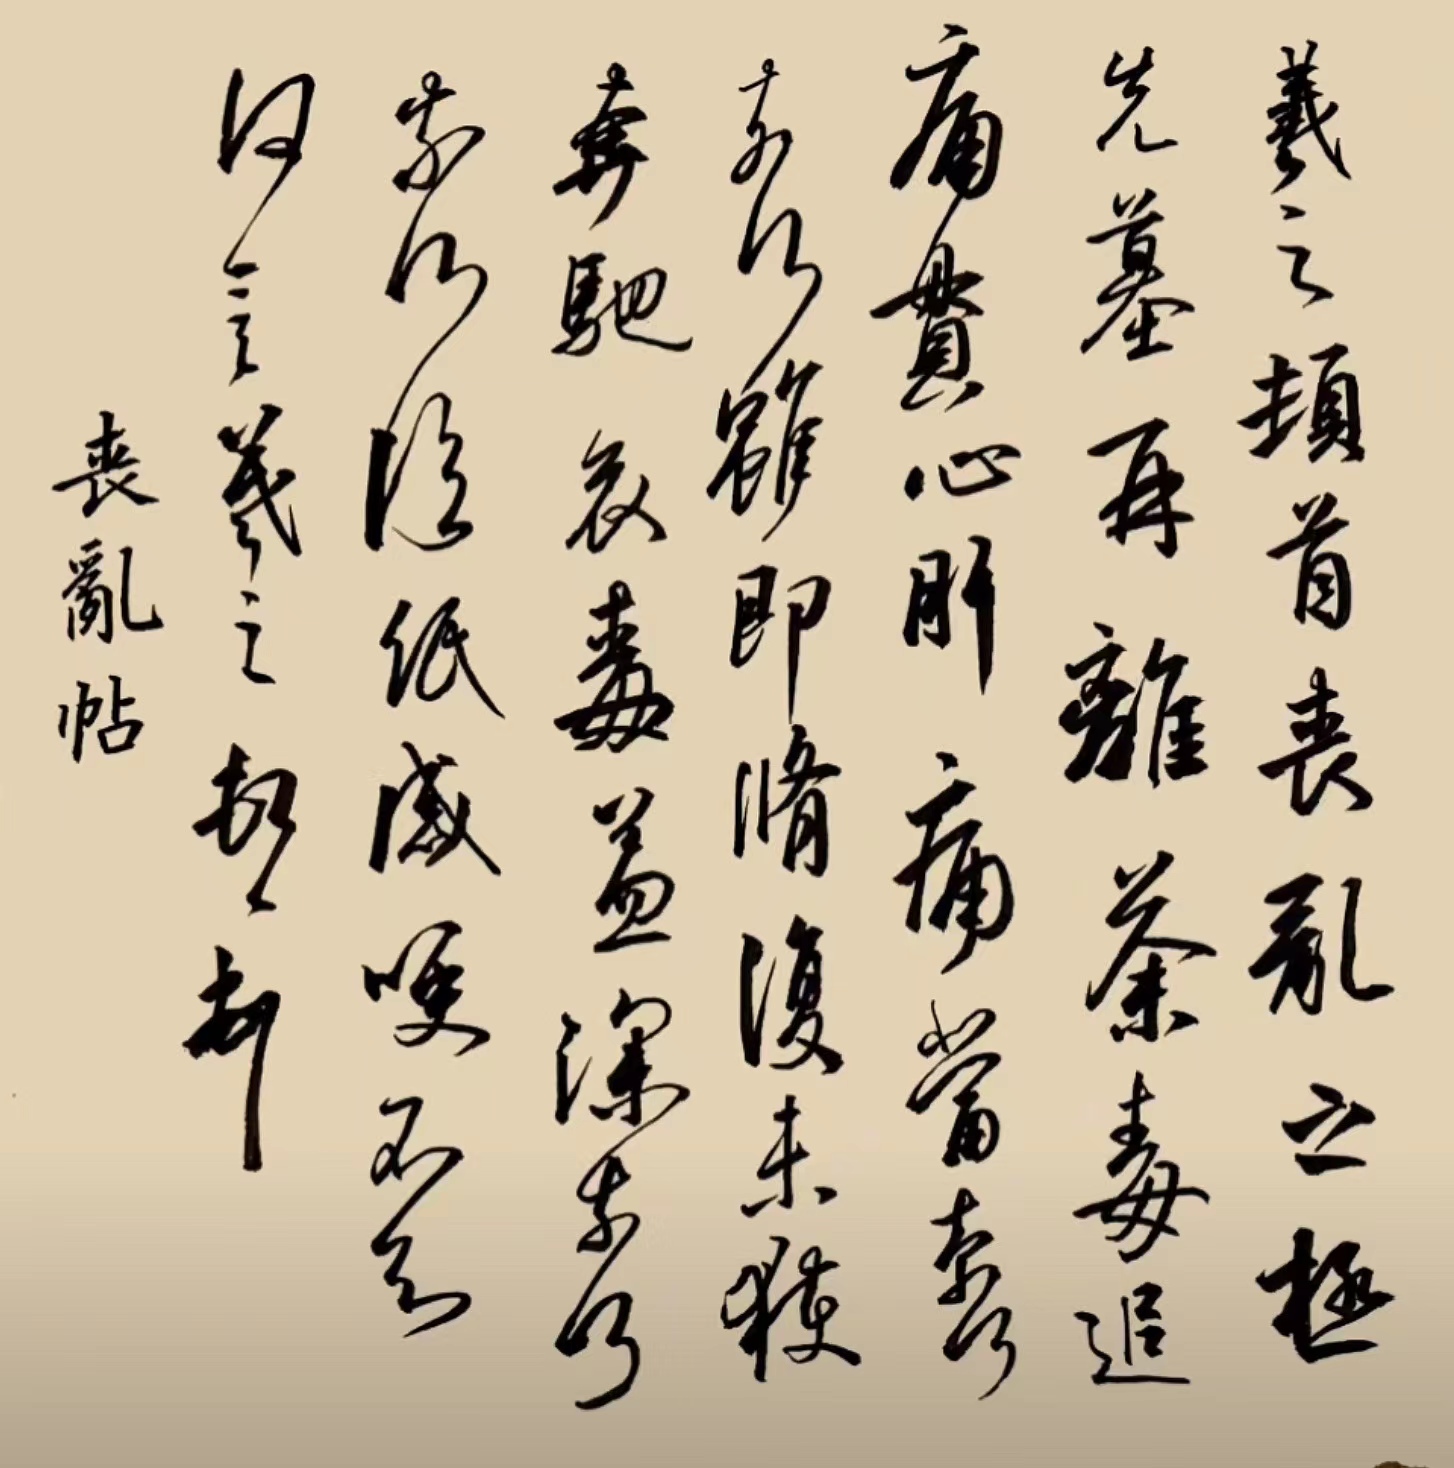 羲之頓首喪亂之極
先墓再離荼毒追
惟酷甚號慕摧絕
痛貫心肝痛當奈何
奈何雖即脩復未獲
奔馳哀毒益深奈何
奈何臨紙感哽不知
何言羲之頓首頓首
喪亂帖